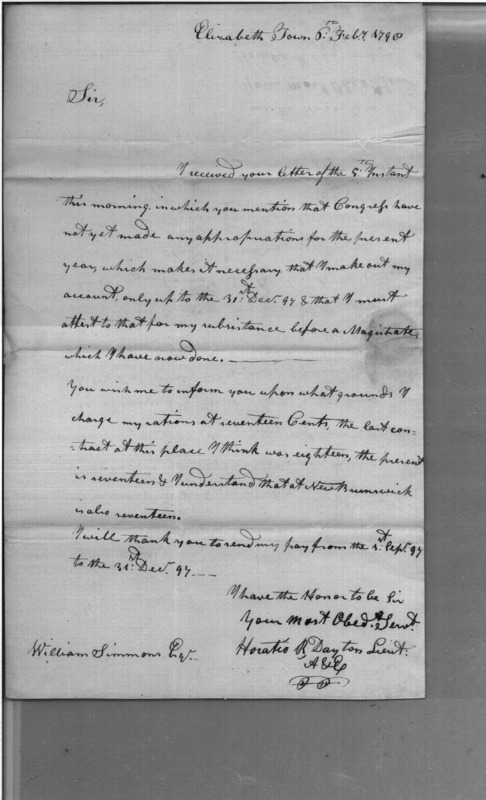 Elizabeth Town 6th Feby 1798
Sir,
I received your letter of the 5th Instant
this morning, in which you mention that Congress have
not yet made any appropriations for the present
year, which makes it necessary that I make out my
account, only up to the 31st Decr 97 & that I must
attest to that for my subsistance before a Magistrate,
which I have now done.
You wish me to inform you upon what grounds I
charge my rations at seventeen Cents, the last con=
=tract at this place I think was eighteen, the present
is seventeen & I understand that at New Brunswick
is also seventeen.
I will thank you to send my pay from the 1st Sepr 97
to the 31st Decr 97
I have the Honor to be Sir
Your Most Obedt Servt
Horatio R Dayton Lieut.
A & E
William Simmons Esqr